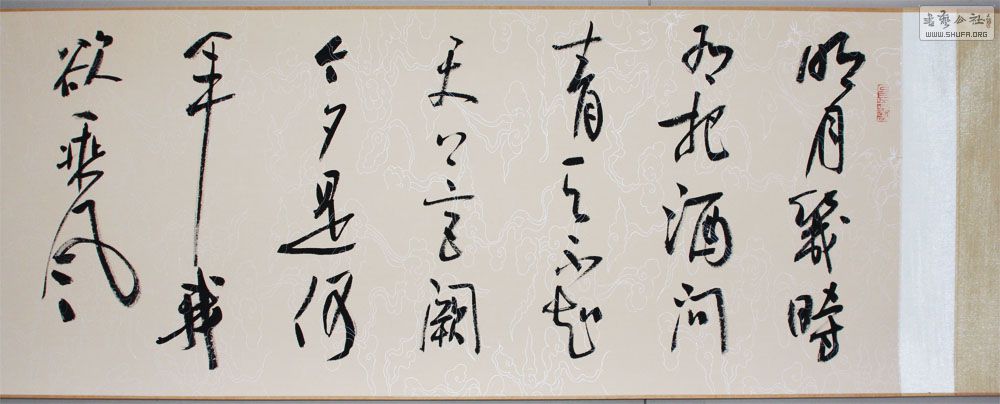 明月幾時
有把酒問
青天不知
天上宫闕
今夕是何
年我
欲乘風
書藝公社
WWW.SHUFA.ORG